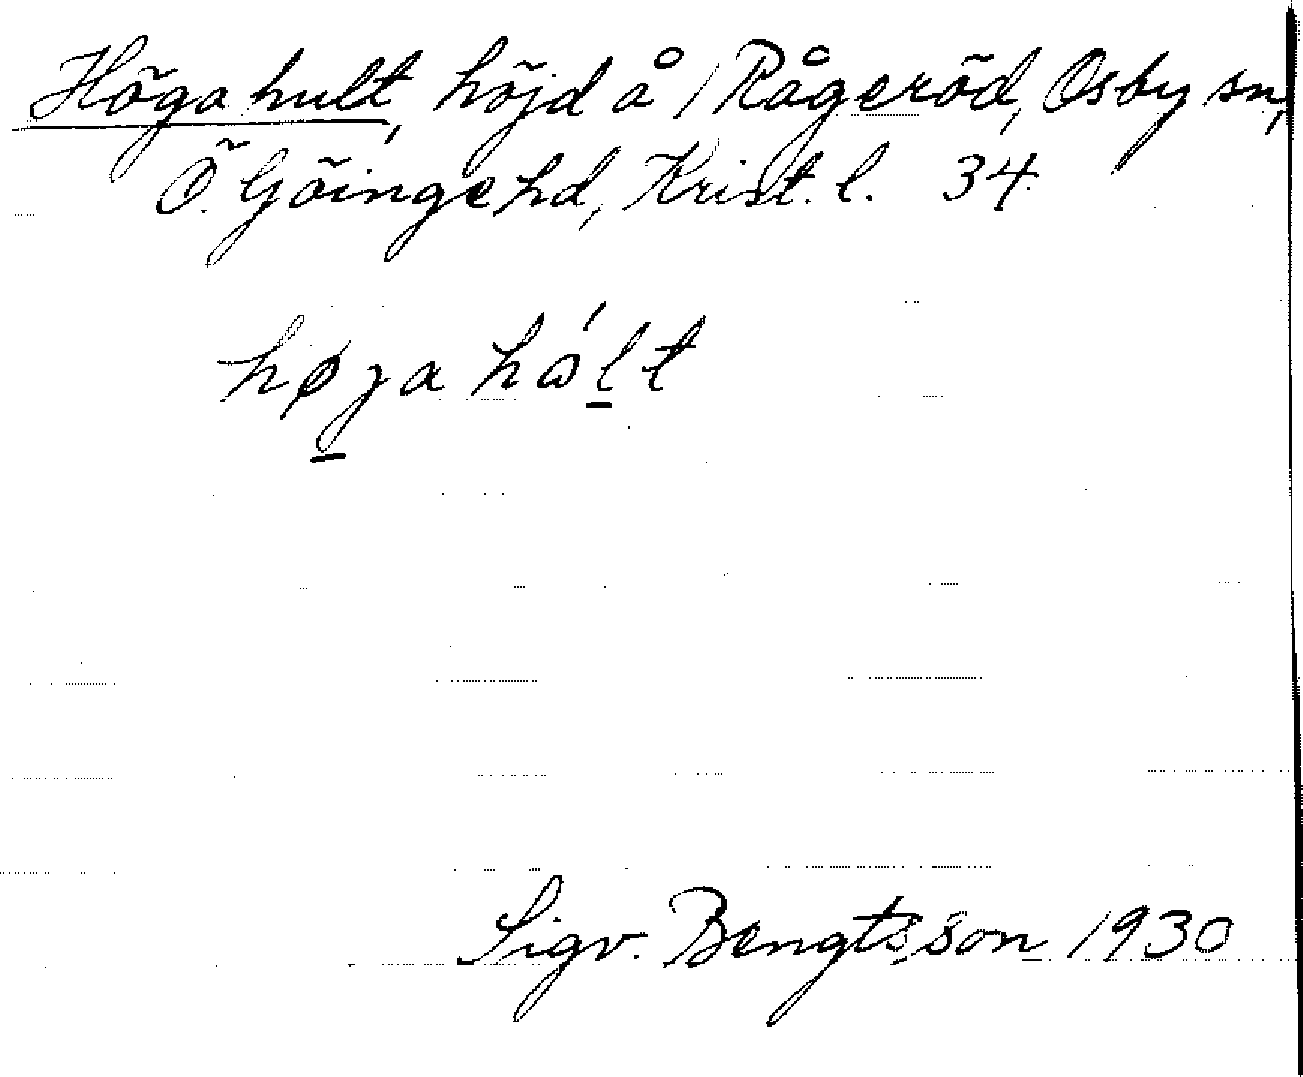 Högahult, höjd å 1 Rågeröd, Osby sn,
Ö. Göinge hd, Krist. l. 34.
høja hålt
Sigv. Bengtsson 1930